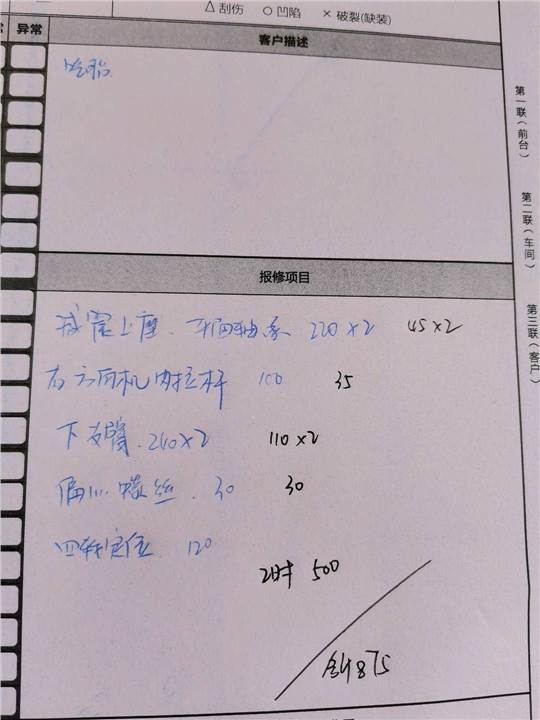 △ 刮伤 ○ 凹陷 × 破裂(缺装)
异常
客户描述
吃胎
报修项目
减震上座、平面轴承 220×2 45×2
右方向机内拉杆 100 35
下支臂 240×2 110×2
偏心螺丝 30 30
四轮定位 120
工时 500
合计875
第一联(前台)
第二联(车间)
第三联(客户)